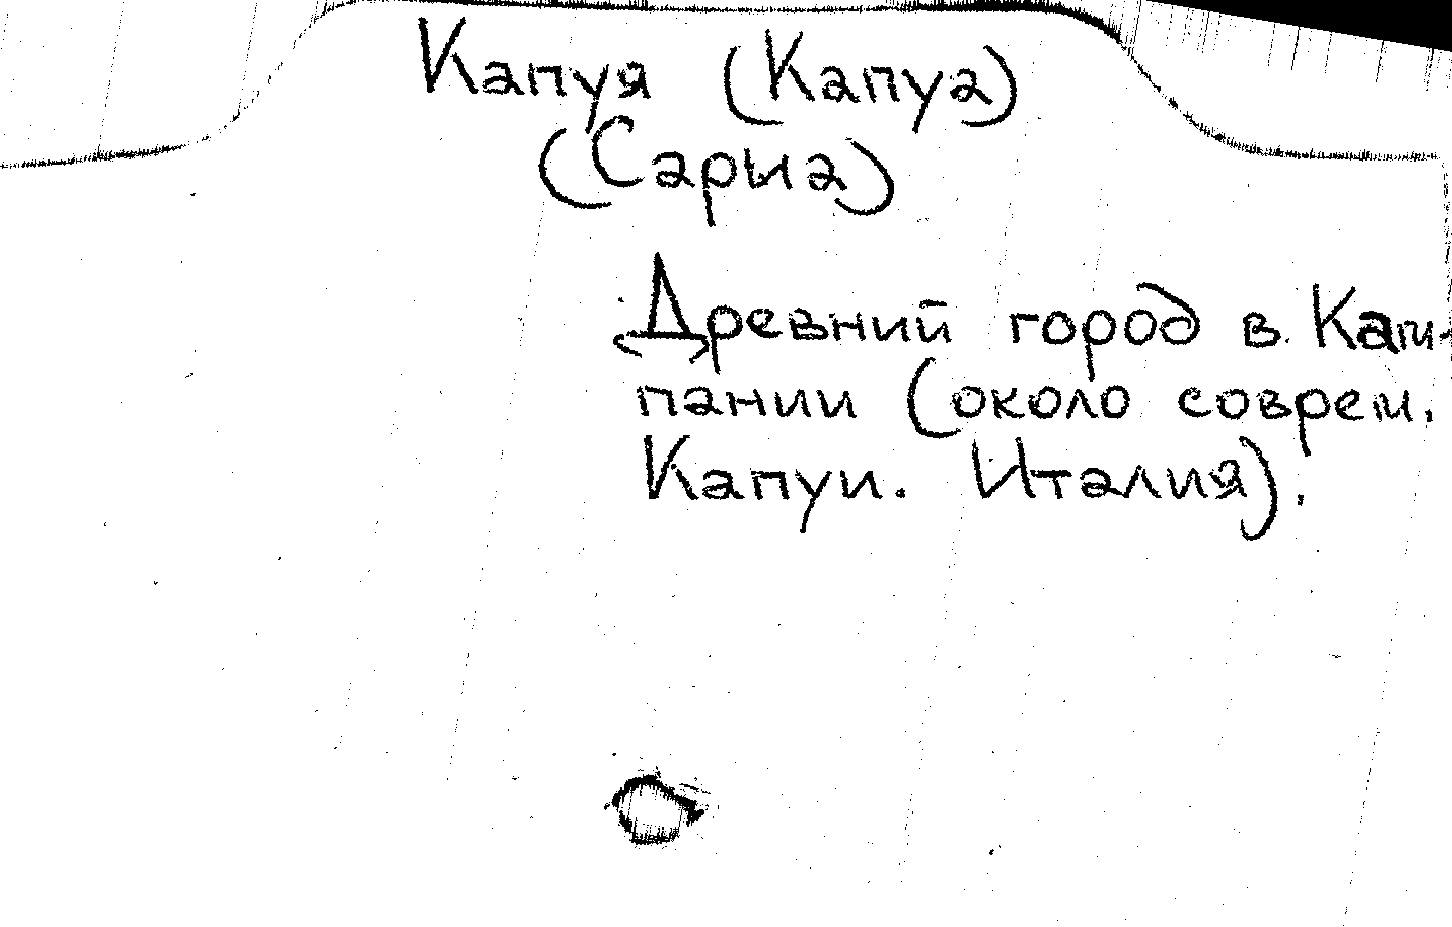 Капуя (Капуа)
(Capua)
Древний город в Кам-
пании (около соврем.
Капуи. Италия).